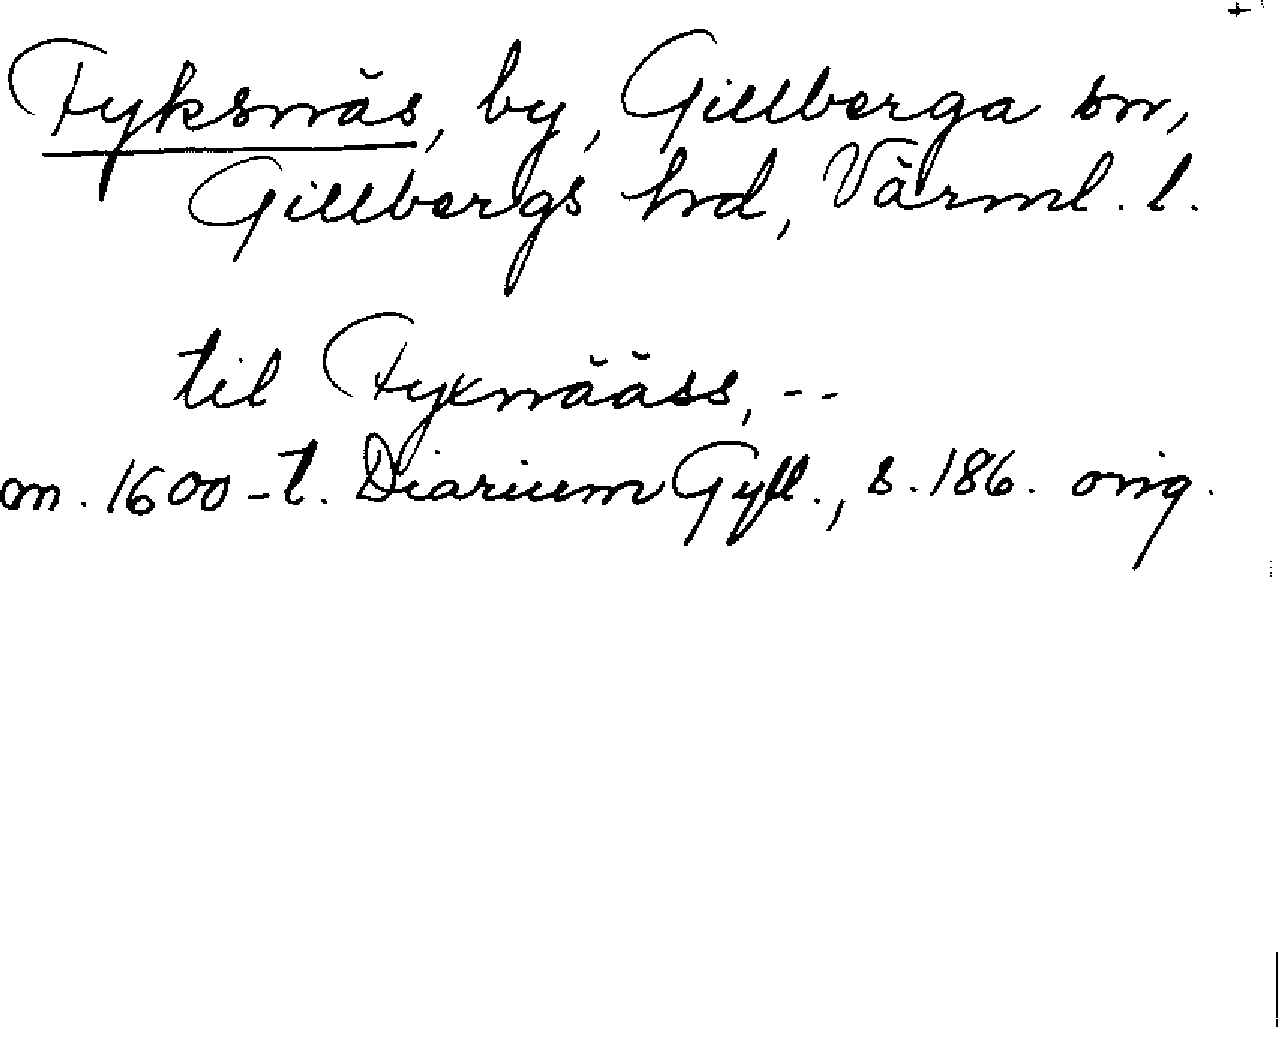 Fyksnäs, by, Gillberga sn,
Gillbergs hd, Värml. l.
til Fyxnääss, --
m. 1600-t. Diarium Gyll., s. 186. orig.